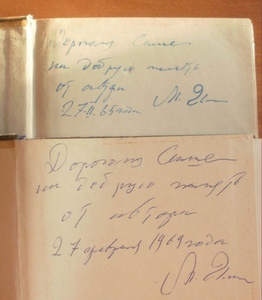 Дорогому Саше
на добрую память
от автора
27.II.69 года
Дорогому Саше
на добрую память
от автора
27 февраля 1969 года